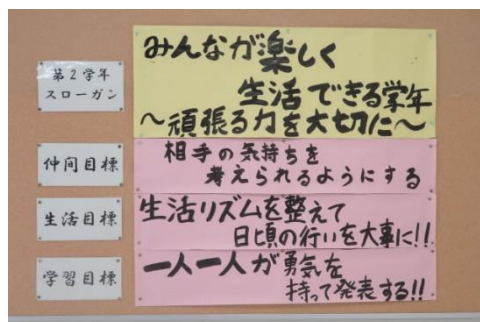 第2学年
スローガン
みんなが楽しく
生活できる学年
～頑張る力を大切に～
仲间目標
相手の気持ちを
考えられるようにする
生活目標
生活リズムを整えて
日頃の行いを大事に!!
学習目標
一人一人が勇気を
持って発表する!!